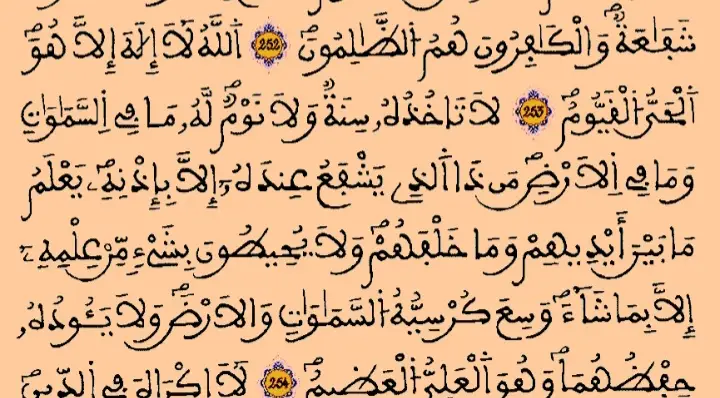 شَفَٰعَةٞۖ وَالْكَٰفِرُونَ هُمُ اُلظَّٰلِمُونَۖ 252 اَ۬للَّهُ لَآ إِلَٰهَ إِلَّا هُوَۖ
اَ۬لْحَيُّ اُ۬لْقَيُّومُۖ 253 لَا تَاخُذُهُۥ سِنَةٞ وَلَا نَوْمٞۖ لَّهُۥ مَا فِے اِ۬لسَّمَٰوَٰتِ
وَمَا فِے اِ۬لَارْضِۖ مَن ذَا اَ۬لذِے يَشْفَعُ عِندَهُۥٓ إِلَّا بِإِذْنِهِۦۖ يَعْلَمُ
مَا بَيْنَ أَيْدِيهِمْ وَمَا خَلْفَهُمْۖ وَلَا يُحِيطُونَ بِشَےْءٖ مِّنْ عِلْمِهِۦٓ
إِلَّا بِمَا شَآءَۖ وَسِعَ كُرْسِيُّهُ اُ۬لسَّمَٰوَٰتِ وَالَارْضَۖ وَلَا يَـُٔودُهُۥ
حِفْظُهُمَاۖ وَهُوَ اَ۬لْعَلِيُّ اُ۬لْعَظِيمُۖ 254 لَآ إِكْرَاهَ فِے اِ۬لدِّينِۖ